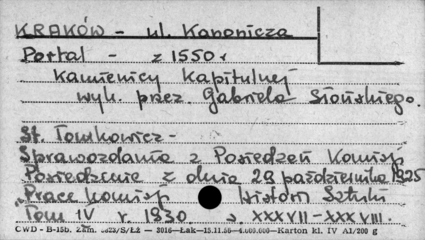 KRAKÓW - ul. Kanonicza
Portal - z 1550 r
Kamienicy Kapitulnej
wyk. przez Gabriela Słońskiego.
St. Tomkowicz -
Sprawozdania z Posiedzeń Komisji
Posiedzenie z dnia 29 października 1925
"Prace Komisji Historii Sztuki
Tom IV r. 1930 s. XXXVII-XXXVIII.
CWD - B-15b. Zam. /SŁ — 3016—Łak—15.11.55—4.000.000—Karton kl. IV A1/200 g